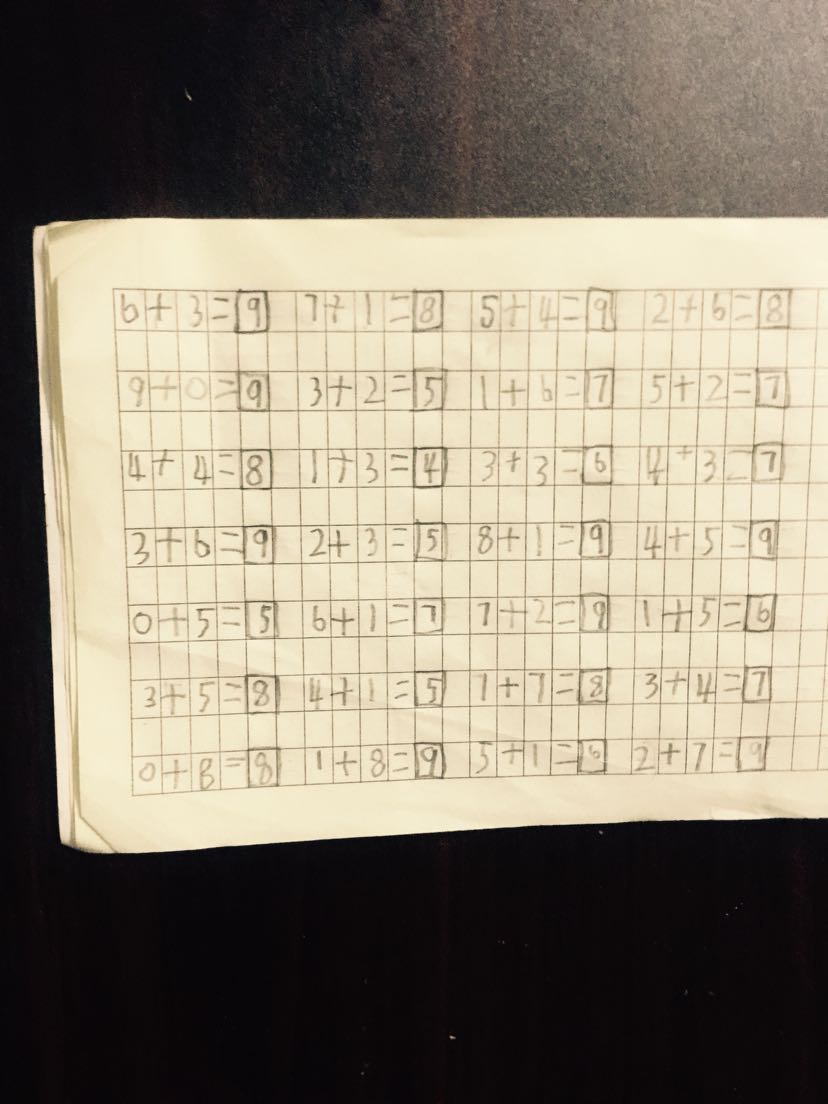 6+3=9 7+1=8 5+4=9 2+6=8
9+0=9 3+2=5 1+6=7 5+2=7
4+4=8 1+3=4 3+3=6 4+3=7
3+6=9 2+3=5 8+1=9 4+5=9
0+5=5 6+1=7 7+2=9 1+5=6
3+5=8 4+1=5 1+7=8 3+4=7
0+8=8 1+8=9 5+1=6 2+7=9